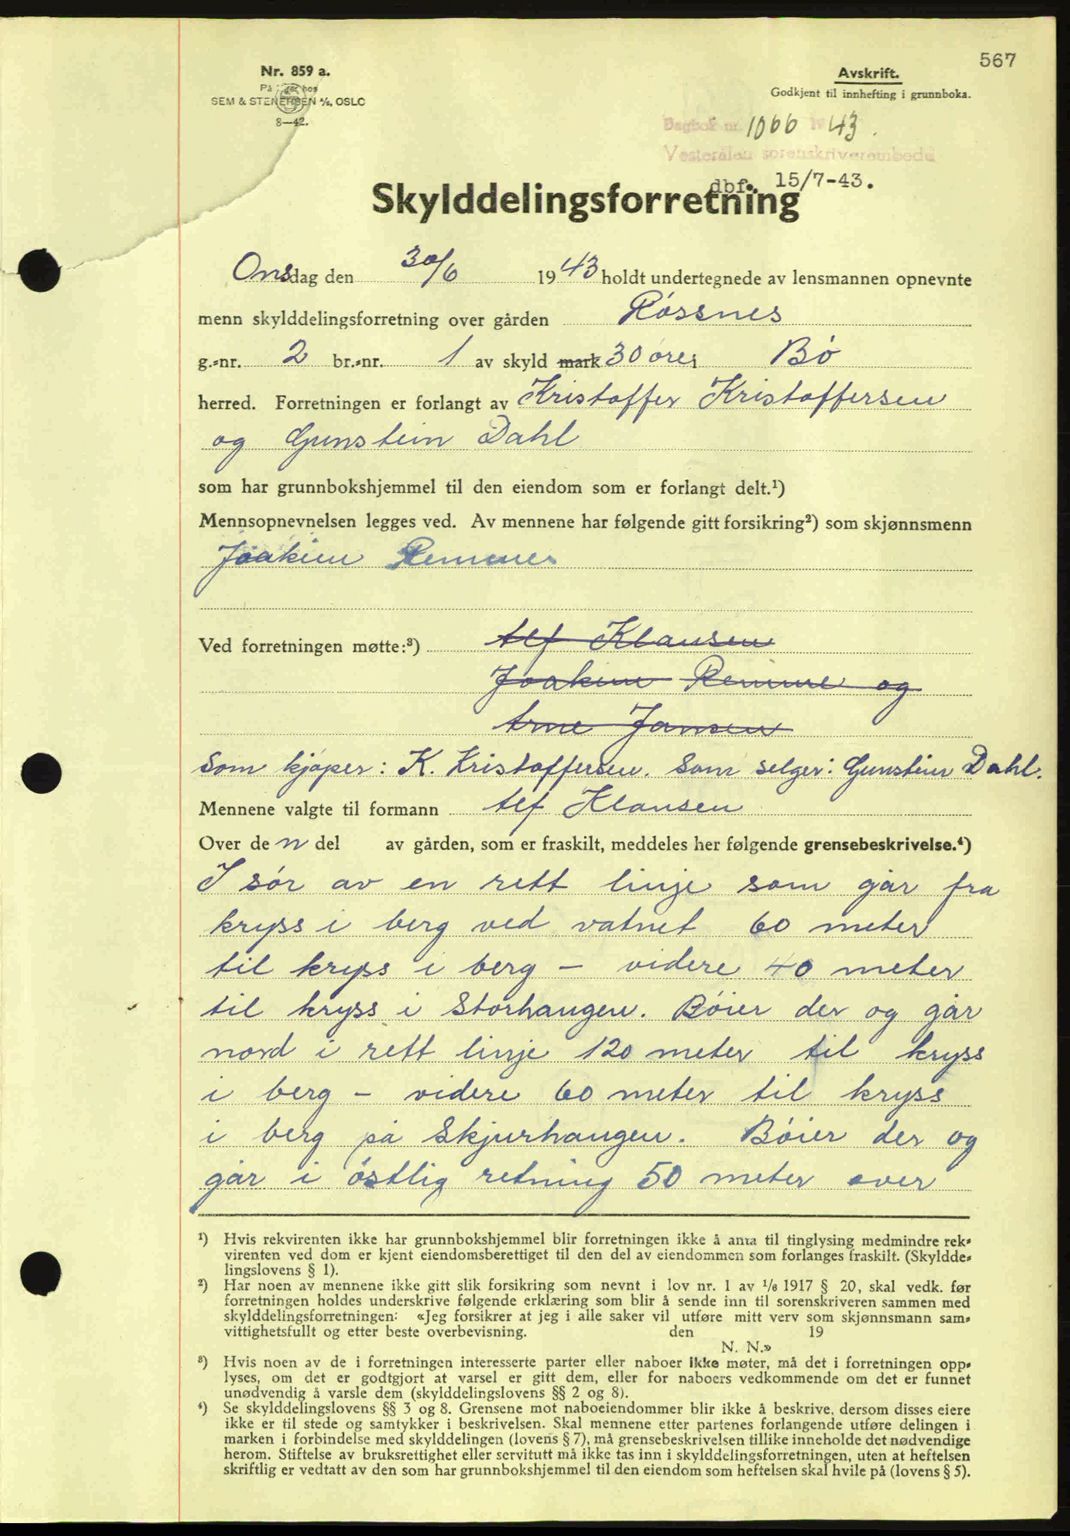 567
Nr. 859 a.
På lager hos
SEM & STENERSEN A/S, OSLO
8—42.
Avskrift.
Godkjent til innhefting i grunnboka.
Dagbok nr. 1066 1943.
Vesterålen sorenskriverembede
dbf. 15/7-43.
Skylddelingsforretning
Onsdag den 30/6 1943 holdt undertegnede av lensmannen opnevnte
menn skylddelingsforretning over gården Røssnes
g.-nr. 2 br.-nr. 1 av skyld mark 30 øre i Bø
herred. Forretningen er forlangt av Kristoffer Kristoffersen
og Gunstein Dahl
som har grunnbokshjemmel til den eiendom som er forlangt delt.¹)
Mennsopnevnelsen legges ved. Av mennene har følgende gitt forsikring²) som skjønnsmenn
Joakim Remmer
Ved forretningen møtte:³) Alf Klausen
Joakim Remme og
Arne Jansen
Som kjøper: K. Kristoffersen. Som selger: Gunstein Dahl.
Mennene valgte til formann Alf Klausen
Over den del av gården, som er fraskilt, meddeles her følgende grensebeskrivelse.⁴)
I sør av en rett linje som går fra
kryss i berg ved vatnet 60 meter
til kryss i berg – videre 40 meter
til kryss i Storhaugen. Bøier der og går
nord i rett linje 120 meter til kryss
i berg – videre 60 meter til kryss
i berg på Skjurhaugen. Bøier der og
går i østlig retning 50 meter over
¹) Hvis rekvirenten ikke har grunnbokshjemmel blir forretningen ikke å anta til tinglysing medmindre rek-
virenten ved dom er kjent eiendomsberettiget til den del av eiendommen som forlanges fraskilt. (Skyldde-
lingslovens § 1).
²) Har noen av mennene ikke gitt slik forsikring som nevnt i lov nr. 1 av 1/6 1917 § 20, skal vedk. før
forretningen holdes underskrive følgende erklæring som blir å sende inn til sorenskriveren sammen med
skylddelingsforretningen: «Jeg forsikrer at jeg i alle saker vil utføre mitt verv som skjønnsmann sam-
vittighetsfullt og etter beste overbevisning. den 19
N. N.»
³) Hvis noen av de i forretningen interesserte parter eller naboer ikke møter, må det i forretningen opp-
lyses, om det er godtgjort at varsel er gitt dem, eller for naboers vedkommende om det er funnet
unødvendig å varsle dem (skylddelingslovens §§ 2 og 8).
⁴) Se skylddelingslovens §§ 3 og 8. Grensene mot naboeiendommer blir ikke å beskrive, dersom disses eiere
ikke er til stede og samtykker i beskrivelsen. Skal mennene etter partenes forlangende utføre delingen i
marken i forbindelse med skylddelingen (lovens § 7), må grensebeskrivelsen tillike inneholde det nødvendige
herom. Stiftelse av bruksrettighet eller servitutt må ikke tas inn i skylddelingsforretningen, uten at heftelsen
skriftlig er vedtatt av den som har grunnbokshjemmel til den eiendom som heftelsen skal hvile på (lovens § 5).